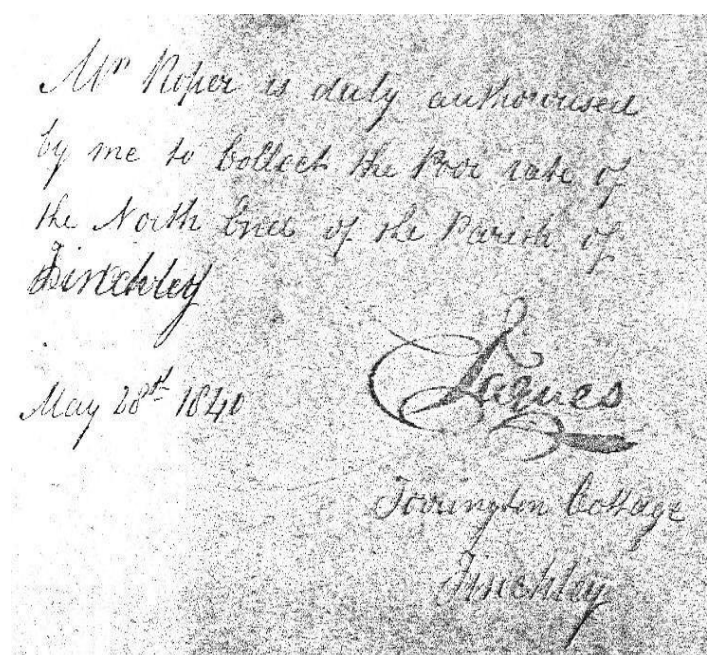 Mr Roper is duly authorised
by me to Collect the Poor rate of
the North End of the Parish of
Finchley
May 28th 1840
Torrington Cottage
Finchley